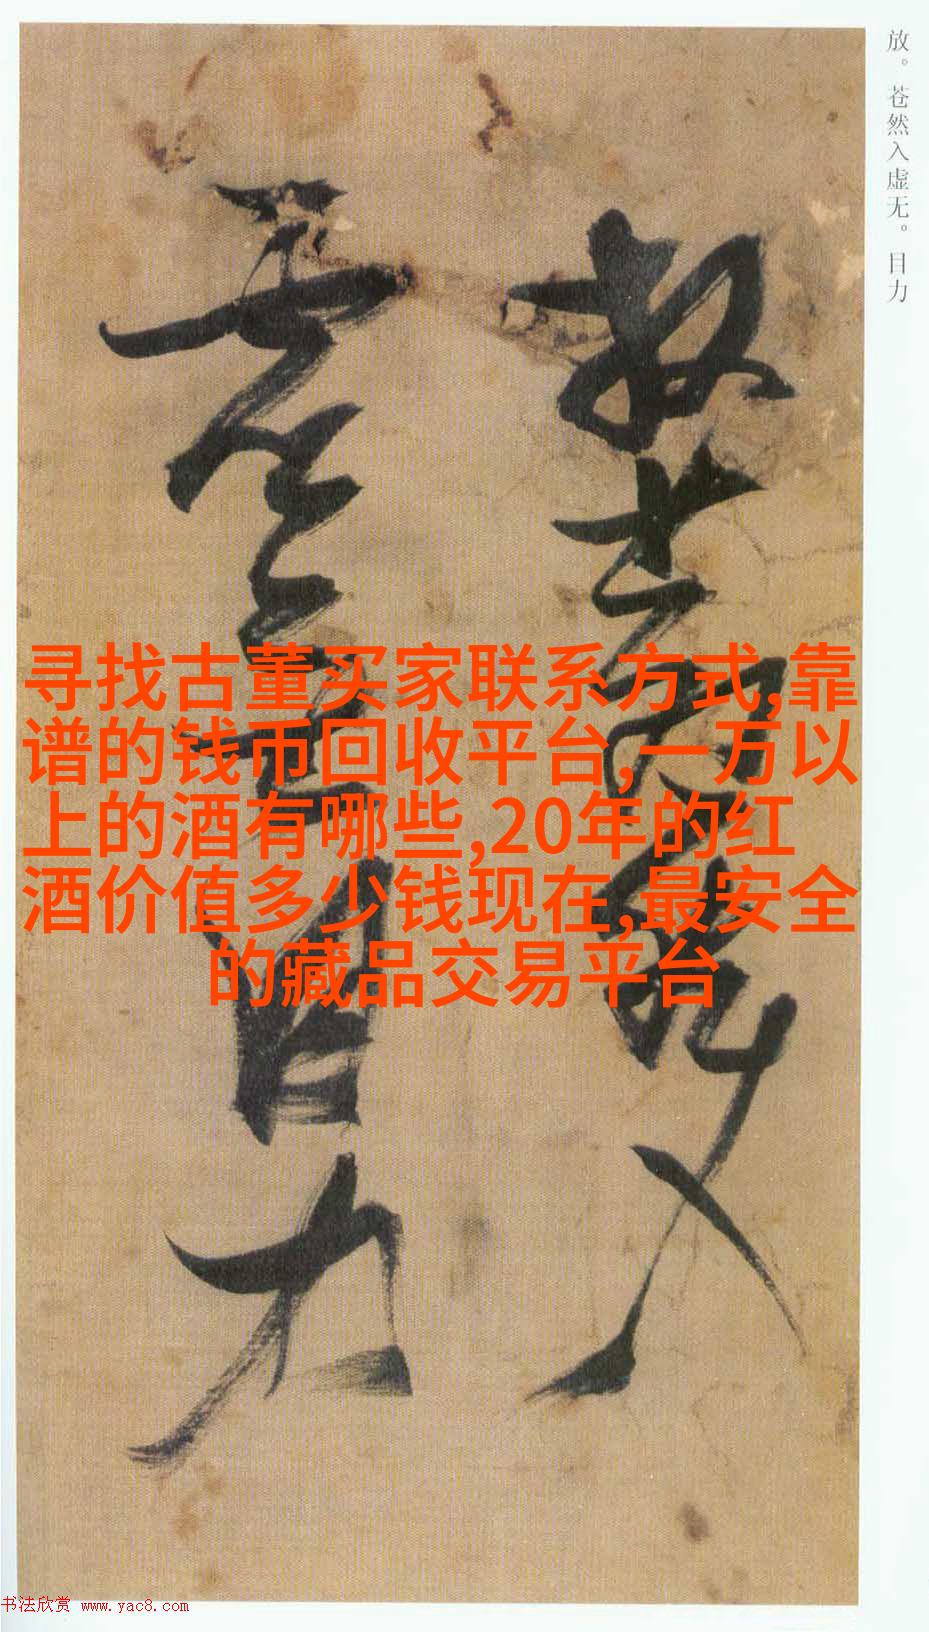 放。苍然入虚无。目力
放苍然入
虚无目力
寻找古董买家联系方式,靠
谱的钱币回收平台,一万以
上的酒有哪些,20年的红
酒价值多少钱现在,最安全
的藏品交易平台
书法欣赏 www.yac8.com